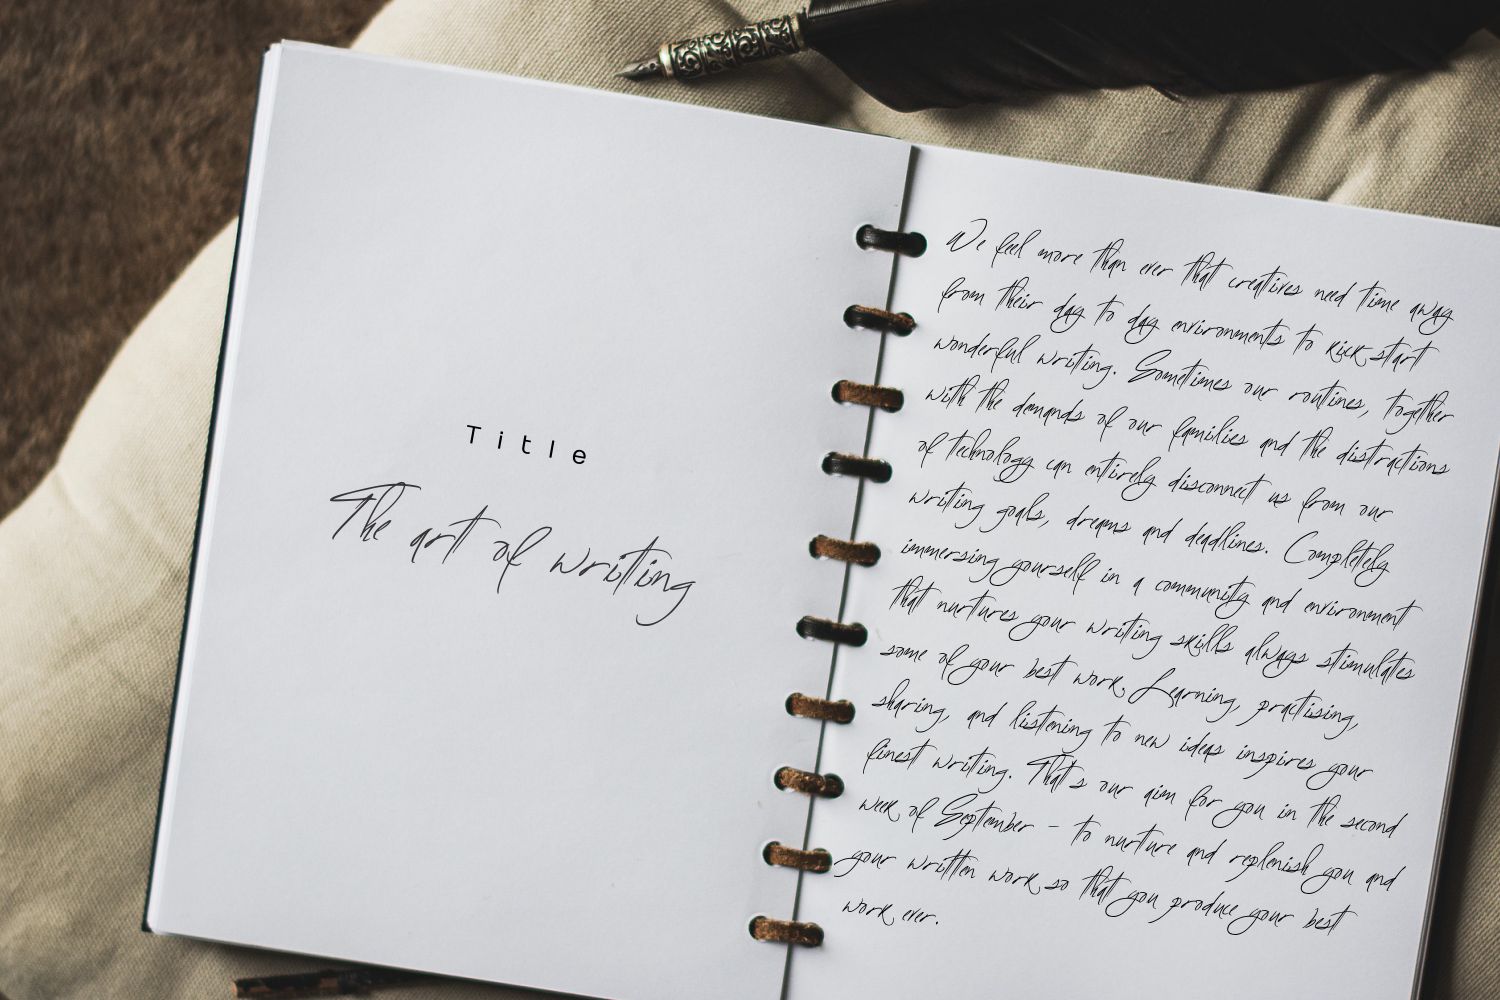 Title
The art of writing
We feel more than ever that creatives need time away
from their day to day environments to kick start
wonderful writing. Sometimes our routines, together
with the demands of our families and the distractions
of technology can entirely disconnect us from our
writing goals, dreams and deadlines. Completely
immersing yourself in a community and environment
that nurtures your writing skills always stimulates
some of your best work. Learning, practising,
sharing, and listening to new ideas inspires your
finest writing. That's our aim for you in the second
week of September - to nurture and replenish you and
your written work so that you produce your best
work ever.